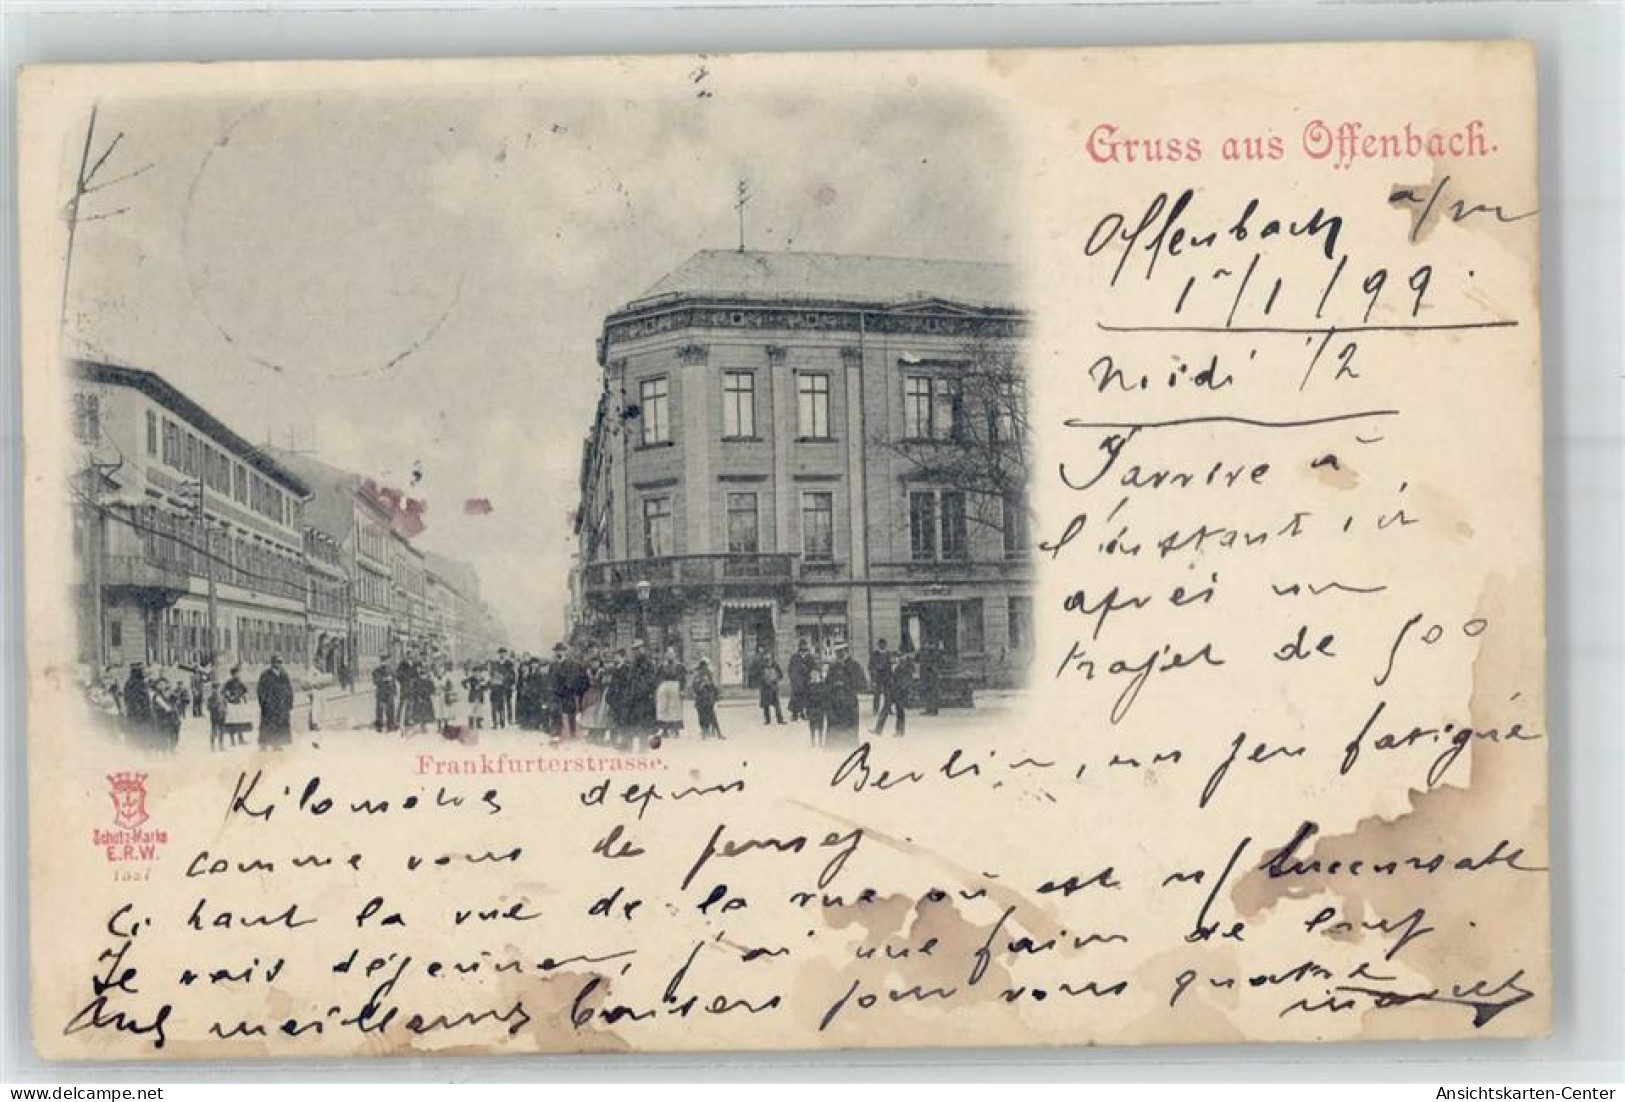 Gruss aus Offenbach.
Offenbach a/m
1/1/99.
midi 1/2
J'arrive à
l'instant ici
après un
trajet de 500
Kilomètres depuis Berlin, un peu fatigué
comme vous le pensez.
Ci haut la vue de la rue où est n/ Succursale
Je vais déjeuner, j'ai une faim de loup.
Mes meilleurs baisers pour vous quatre
Frankfurterstrasse.
Schutz-Marke
E.R.W.